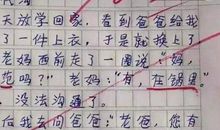 天放学回家，看到爸爸给我
了一件上衣，于是就换上了
老妈面前走了一圈说："妈，
范吗？"老妈："有，在锅里。"
没法沟通了。
后我去问爸爸："老爸，您有